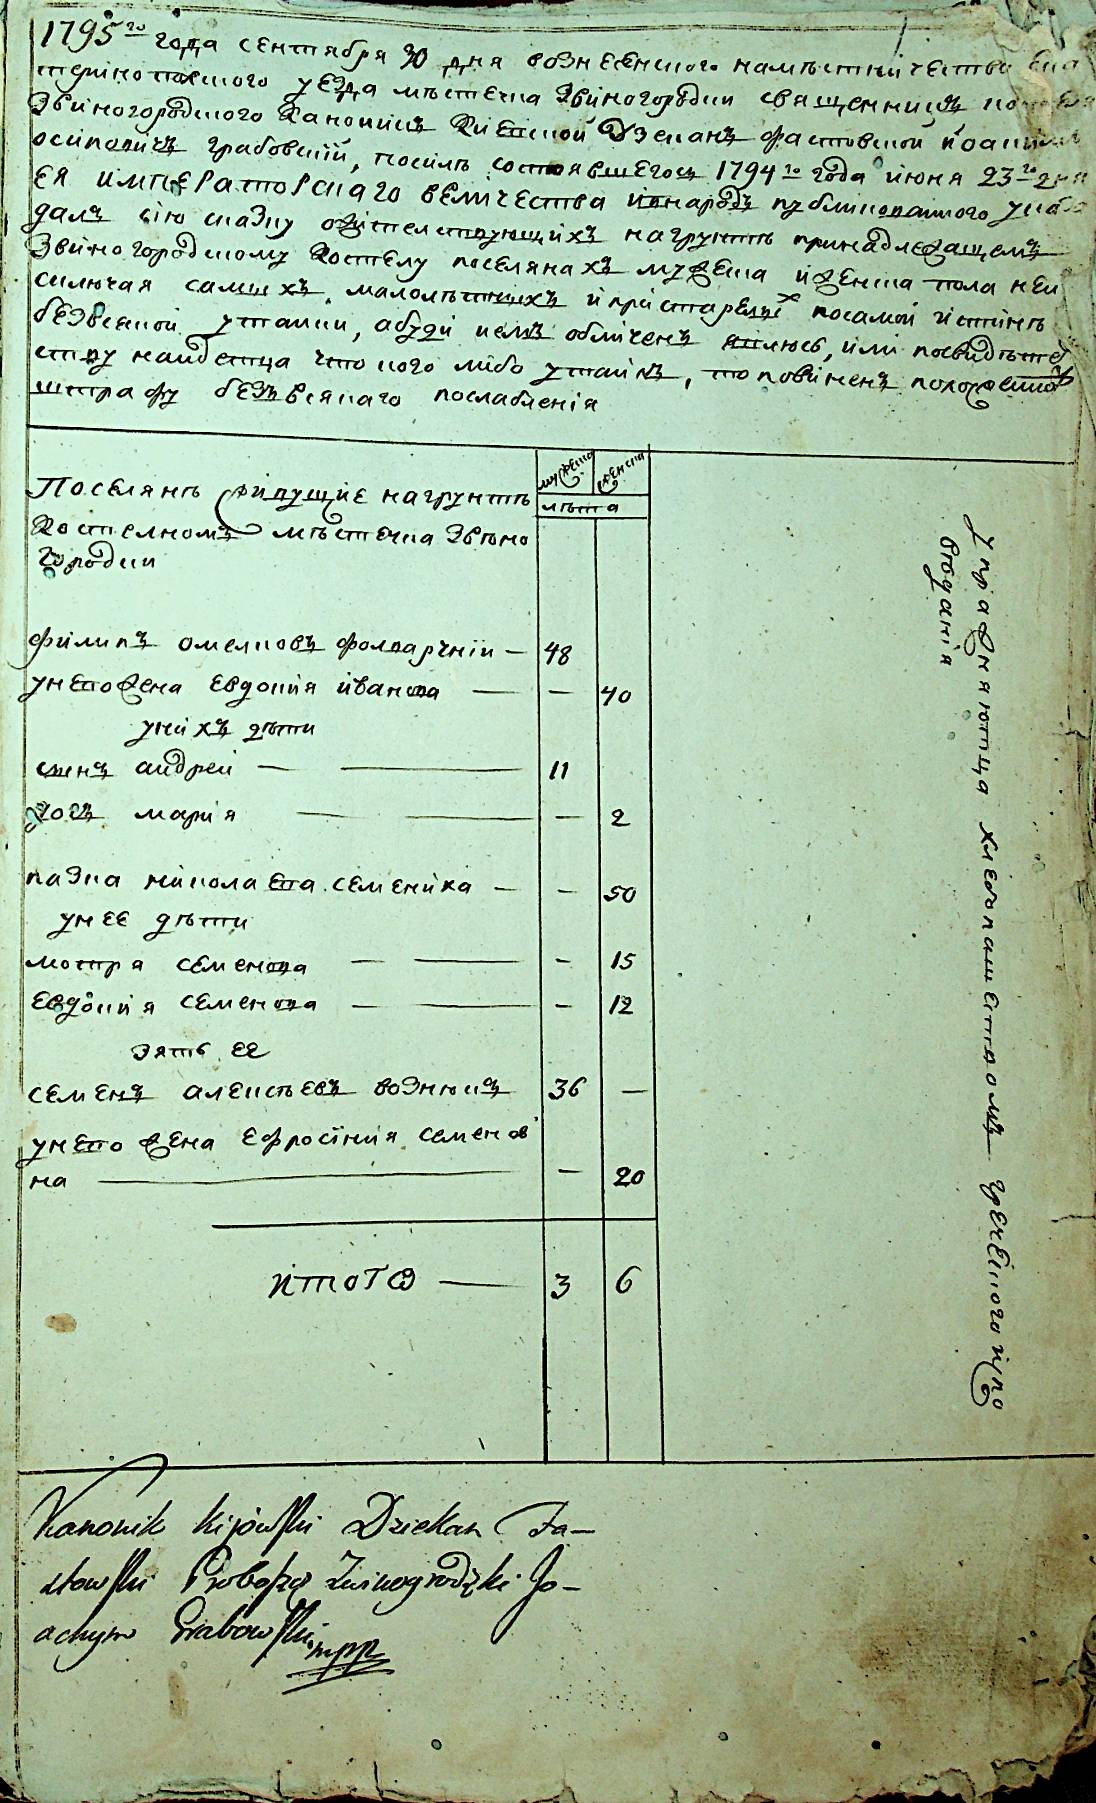 1795го года сентября 30 дня вознесенского намѣстничества ека
терінополского уезда мѣстечка Звіногородки священникъ
Звіногородского Каноникъ Киевской Дзеканъ фастовской іоакимъ
осиповичъ грабовскій, посилѣ состоявшегось 1794го года июня 23го дня
ея императорскаго величества ивнародъ публикованного указа
далъ сію сказку обжітелствующихъ нагрунтѣ принадлежащемъ
Звіногородскому Костелу поселянахъ мужеска иженска пола неи
сключая самихъ малолѣтнихъ и прістарелих посамой истіннѣ
безвсякой утайки, абуди чемъ облiченъ явлюсь, или посвидѣте
ству найдетца что кого либо утаилъ, то повiненъ положенно
штрафу безъвсякаго послабленія
мужеска женска
Поселянѣ живущие нагрунтѣ
лѣта
Костелномъ мѣстечка Звѣно
городки
филипъ омелковъ фолварчній — 48
унево жена Евдокія иванова — — 40
унихъ дѣти
синъ андрей — 11
дочъ марія — — 2
пазка николаева семеника — — 50
унее дѣти
мотря семенова — — 15
Евдокія семенова — — 12
зять ее
семенъ алексѣевъ вознюкъ 36 —
унево жена Ефросинія семенов
на — — 20
итого — 3 6
упражняютца хлебопашествомъ гречейкого испо
веданія
Kanonik Kijowski Dziekan Fa—
stowski Proboszcz Zwinogrodzki Jo—
achym Grabowski mpp